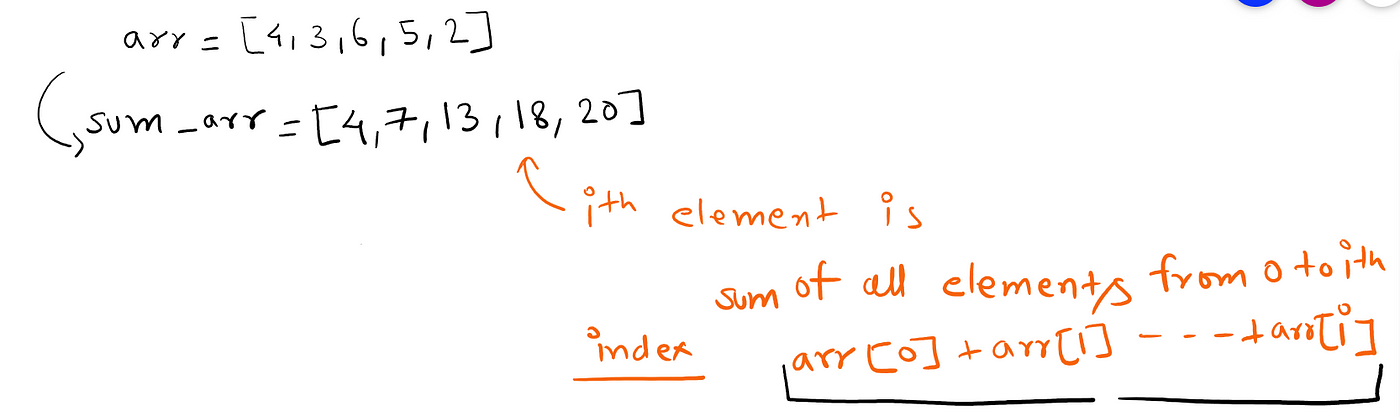 arr = [4,3,6,5,2]
sum_arr = [4,7,13,18,20]
ith element is
sum of all elements from 0 to ith
index arr[0] + arr[1] - - - + arr[i]